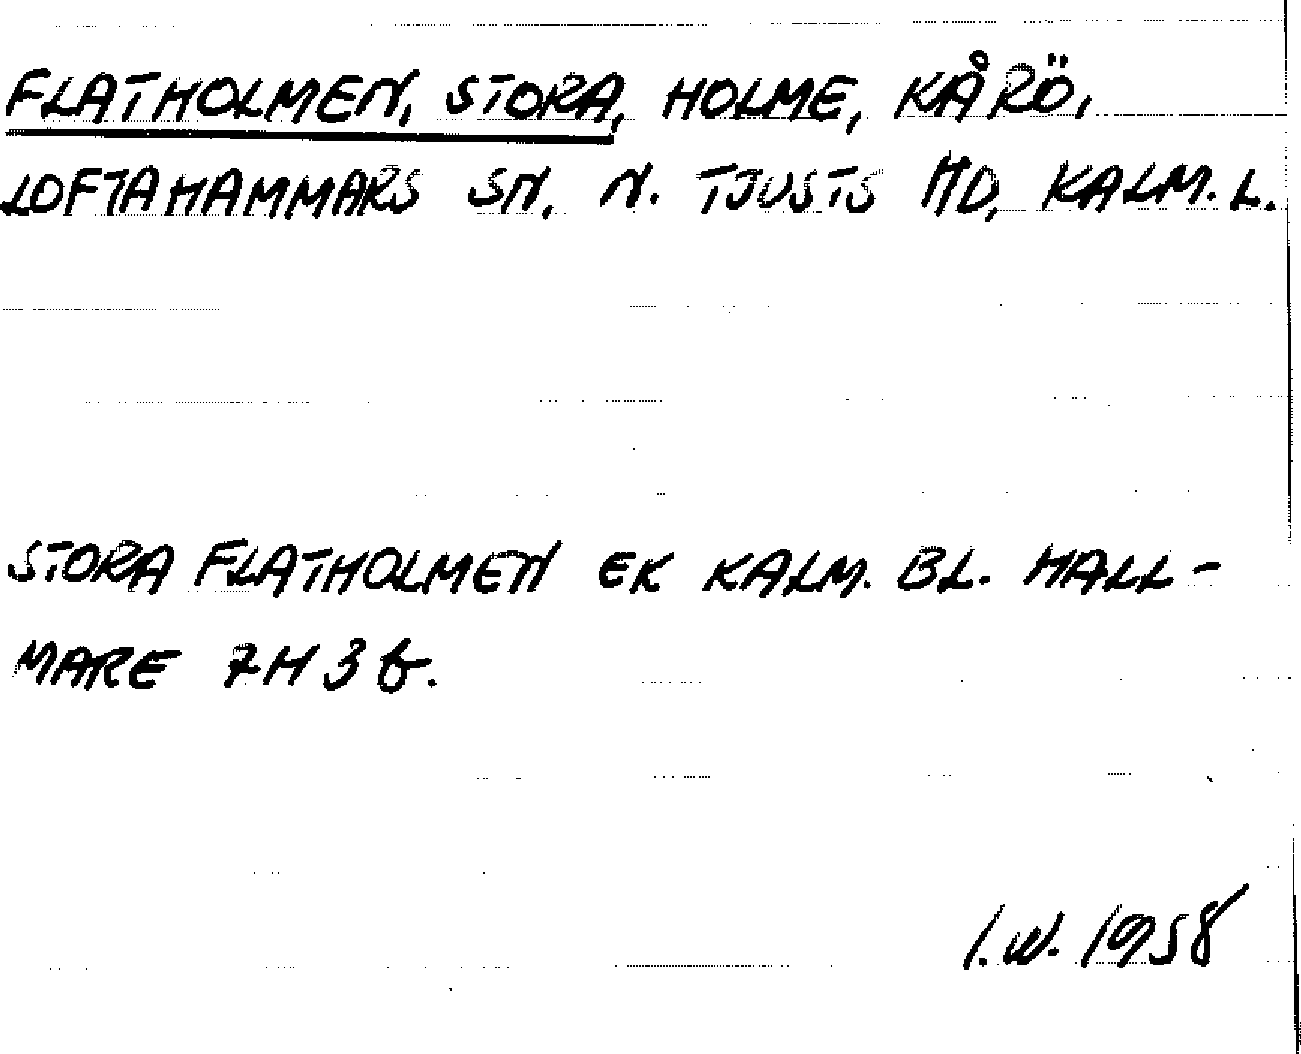 FLATHOLMEN, STORA, HOLME, KÅRÖ,
LOFTAHAMMARS SN, N. TJUSTS HD, KALM. L.
STORA FLATHOLMEN EK KALM. BL. HALL-
MARE 7H 3 b.
I.W. 1958